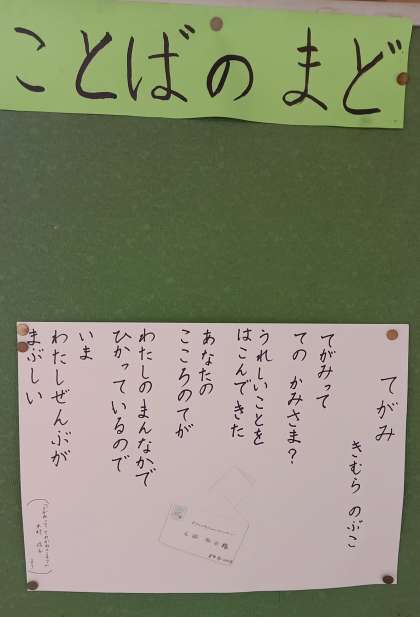 ことばのまど
てがみ
きむら のぶこ
てがみって
ての かみさま？
うれしいことを
はこんできた
あなたの
こころのてが
わたしのまんなかで
ひかっているので
いま
わたしぜんぶが
まぶしい